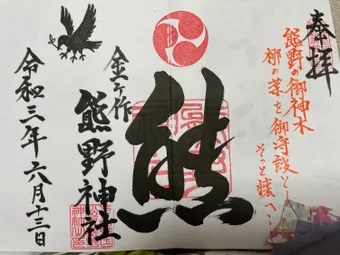 奉拝
熊野の御神木
梛の葉を御守護と
そっと懐へ…
熊
金ヶ作
熊野神社
令和三年六月十三日